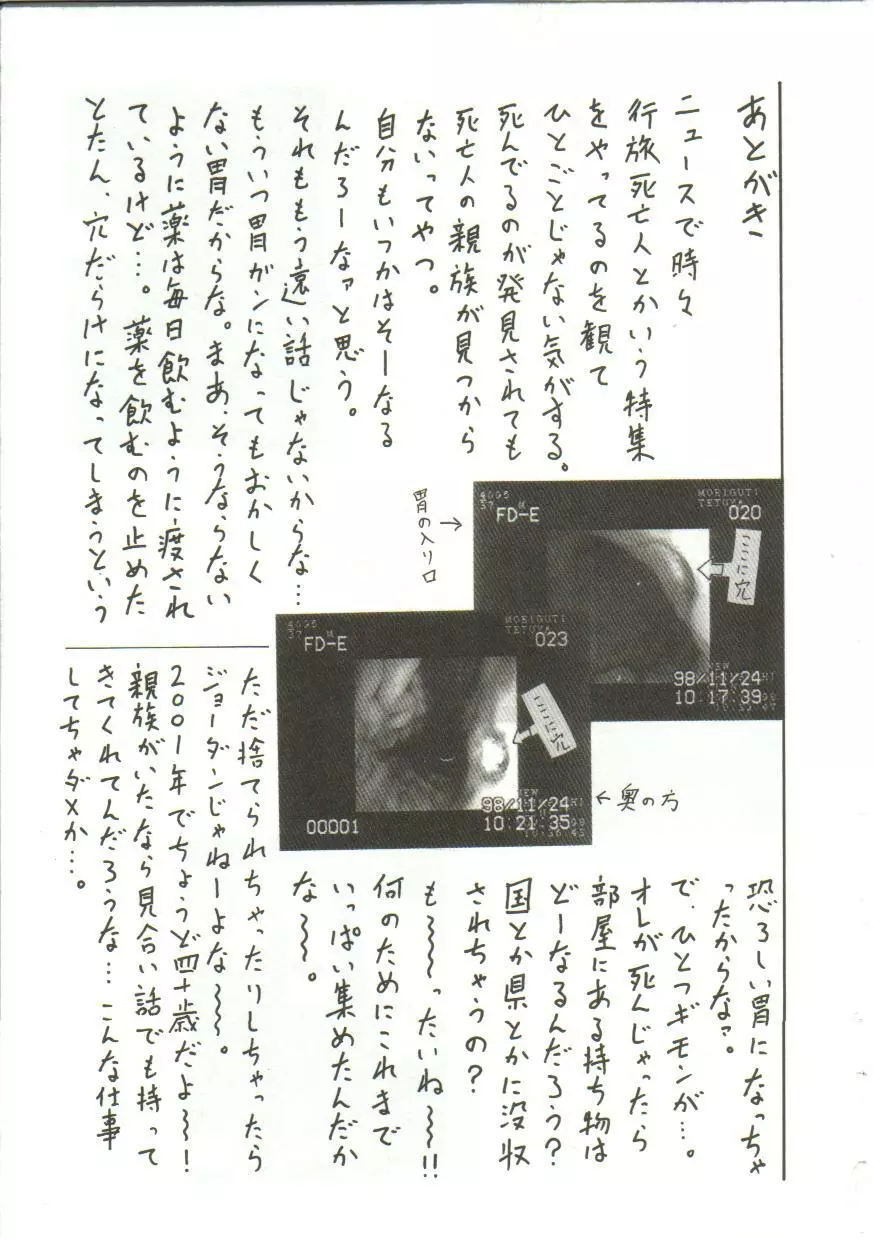 あとがき
ニュースで時々
行旅死亡人とかいう特集
をやってるのを観て
ひとごとじゃない気がする。
死んでるのが発見されても
死亡人の親族が見つから
ないってやつ。
自分もいつかはそーなる
んだろーなァと思う。
それももう遠い話じゃないからな…
もういつ胃がンになってもおかしく
ない胃だからな。まあ、そうならない
ように薬は毎日飲むように渡され
ているけど…。薬を飲むのを止めた
とたん、穴だらけになってしまうという
胃の入り口→
4095
37 M
FD-E
MORIGUTI
TETUYA
020
ここに穴
98/11/24
10:17:39
4095
37 M
FD-E
MORIGUTI
TETUYA
023
ここに穴
98/11/24
10:21:35
00001
←奥の方
恐ろしい胃になっちゃ
ったからなァ。
で、ひとつギモンが…。
オレが死んじゃったら
部屋にある持ち物は
どーなるんだろう?
国とか県とかに没収
されちゃうの?
も〜〜ったいね〜〜!!
何のためにこれまで
いっぱい集めたんだか
な〜〜。
ただ捨てられちゃったりしちゃったら
ジョーダンじゃねーよな〜〜。
2001年でちょうど四十歳だよ〜!
親族がいたなら見合い話でも持って
きてくれてんだろうな…こんな仕事
してちゃダメか…。